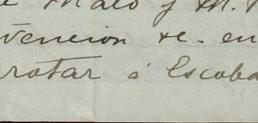 Malo y M.
vencion se en
ratar á Escoba